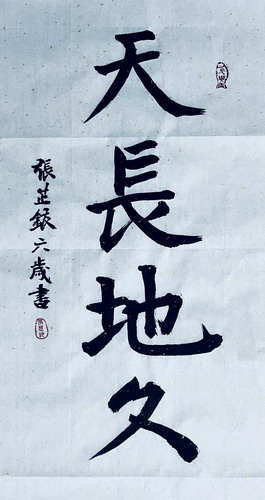 天長地久
張芷銥六歲書